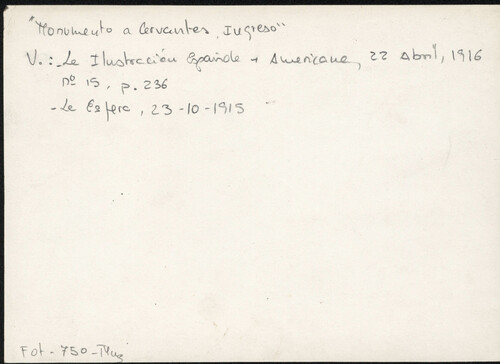 "Monumento a Cervantes, Ingreso"
V.: - La Ilustración Española y Americana, 22 Abril, 1916
nº 15, p. 236
- La Esfera, 23-10-1915
Fot-750-Muz